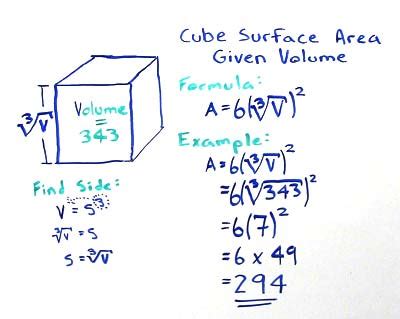 Cube Surface Area
Given Volume
Formula:
A = 6(∛V)²
Example:
A = 6(∛V)²
= 6(∛343)²
= 6(7)²
= 6 x 49
= 294
∛V
Volume
=
343
Find Side:
V = S³
∛V = S
S = ∛V